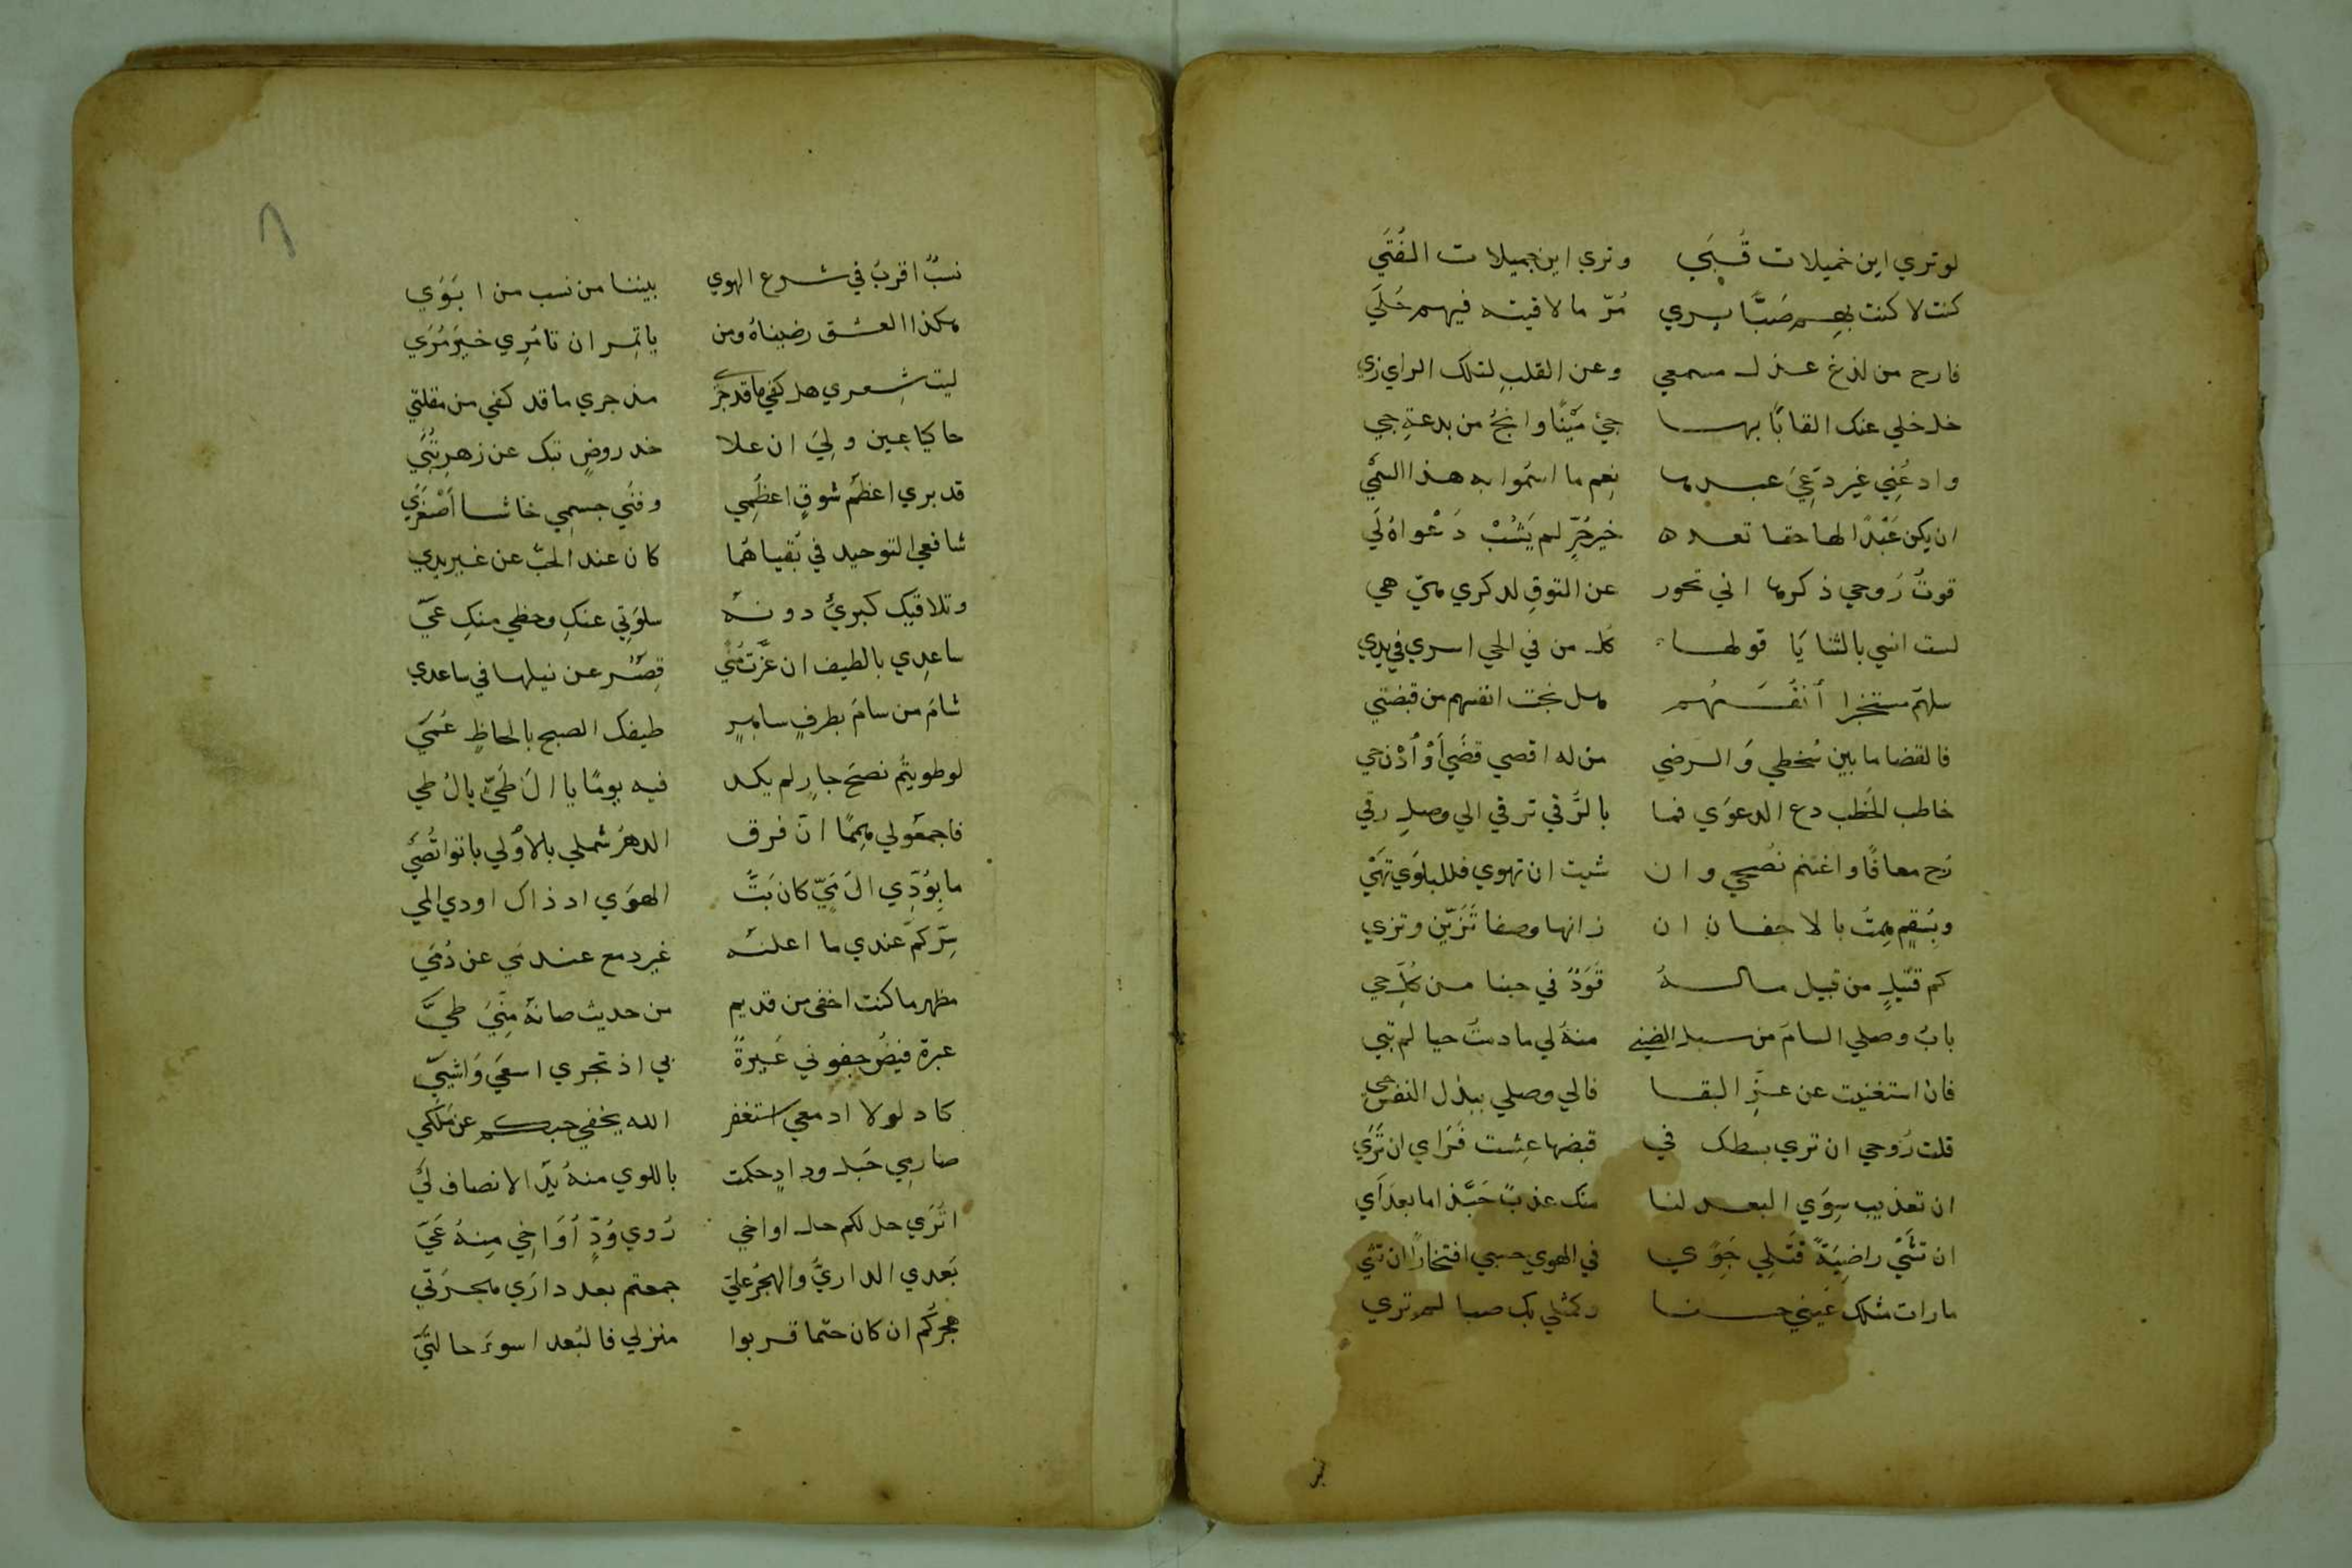 لو تري اين خميلات قُبَي وتري اين جميلات الفُتَي
كنت لا كنت بهم صَبًّا يري مُرّ ما لاقيته فيهم حُلَي
فارح من لذع عذل مسمعي وعن القلب لتلك الراي زي
خل خلي عنك القابًا بها جئ مَيْنًا وانجُ من بدعةِ جي
وادعُنِي غير دَعِيّ عبدها نِعم ما اسمُوا به هذا السمي
ان يكن عَبْدًا لها حقا تعد خير حُرّ لم يَشُبْ دَعْواهُ لَي
قوتُ رُوحي ذكرها اني تحور عن التوقِ لذكري هي هي
لست انسي بالثنايَا قولها كل من في الحي اسري في يدي
سلهم مستخبرا أنفسهم هل نجت انفسهم من قبضتي
فالقضا ما بين سُخطي وَالرضي من له اقصي قضَي أوْ أدْن حي
خاطب الخَطب دع الدعوَي فما بالرُّقي ترقي الي وصلِ رقي
رُح معافًا واغتنم نُصحي وان شيت ان تهوي فللبلوَي تهَيْ
وبِسُقمٍ هِمتُ بالاجفان ان زانها وصفا تُزَيّن وتزي
كم قتيلٍ من قبيل ماله قَوَدٌ في حبنا من كُلِّ حي
بابُ وصلي السامَ من سبل الضني منهُ لي ما دمتُ حيا لم تبي
فان استغنيت عن عزِّ البقا فالي وصلي ببذل النفس حي
قلت رُوحي ان تري بسطك في قبضها عِشت فَرَاي ان تَرَي
ان تعذيب سِوَي البعد لنا منك عذبٌ حَبَّذا ما بعدَ أَي
ان تَشَيْ راضِيَةً قَتْلِي جَوًي في الهوي حسبي افتخارًا ان تشي
ما رات مثلك عَيني حسنا وكمثلي بك صبا لم تري
نسبٌ اقربُ في شرع الهوي بيننا من نسب من ابَوَي
هكذا العشق رضيناهُ ومن ياتمِر ان تامُرِي خيرَ مُرَي
ليت شِعري هل كفي ما قد جرَي مذ جري ما قد كفي من مقلتي
حاكيا عين ولِيّ ان علا خد روضٍ تبك عن زهرٍ تُبَي
قد بري اعظَم شوقٍ اعظُمِي وفنَي جسمِي حاشا أَصْغَرَي
شافعي التوحيد في بُقياهُما كان عند الحبّ عن غير يدي
وتلافيك كبرئ دونه سلوَتِي عنكِ وحظي منكِ عَيّ
ساعِدي بالطيف ان عَزَّت مُنًي قِصَر عن نيلها في ساعدي
شامَ من سامَ بطرفٍ ساهرٍ طيفك الصبح بالحاظٍ عُمَي
لو طويتُم نصحَ جارٍ لم يكد فيه يومًا يا الَ طَيّ يالُ طي
فاجمعوا لي هِممًا ان فرق الدهرُ شملي بالأُولي بانوا قُصَي
ما بِوُدِّي الَ مَيّ كان بَثُّ الهوَي اد ذاك اودي المي
سِرُّكم عندي ما اعلنه غير دمع عندمي عن دُمَي
مظهر ما كنت اخفي من قديم من حديث صانهُ مِنّيَ طيَّ
عبرة فيضُ جفوني عَبرةً بي اذ تجري اسعَي وَاشييّ
كاد لولا ادمعي استغفر الله يخفي حبكم عن مَلَكَي
صارِمي حَبل ودادٍ حكمت باللوي منهُ يَدُ الانصاف لَيَّ
اتُرَي حل لكم حل اواخي رُوي وُدٍّ أوَاخِي مِنهُ عَيّ
بَعدي الداريَّ والهجرُ علي جمعتم بعد دارَي هجرَتي
هجركُم ان كان حتما قربوا منزلي فالبُعد اسوءُ حالتَيّ